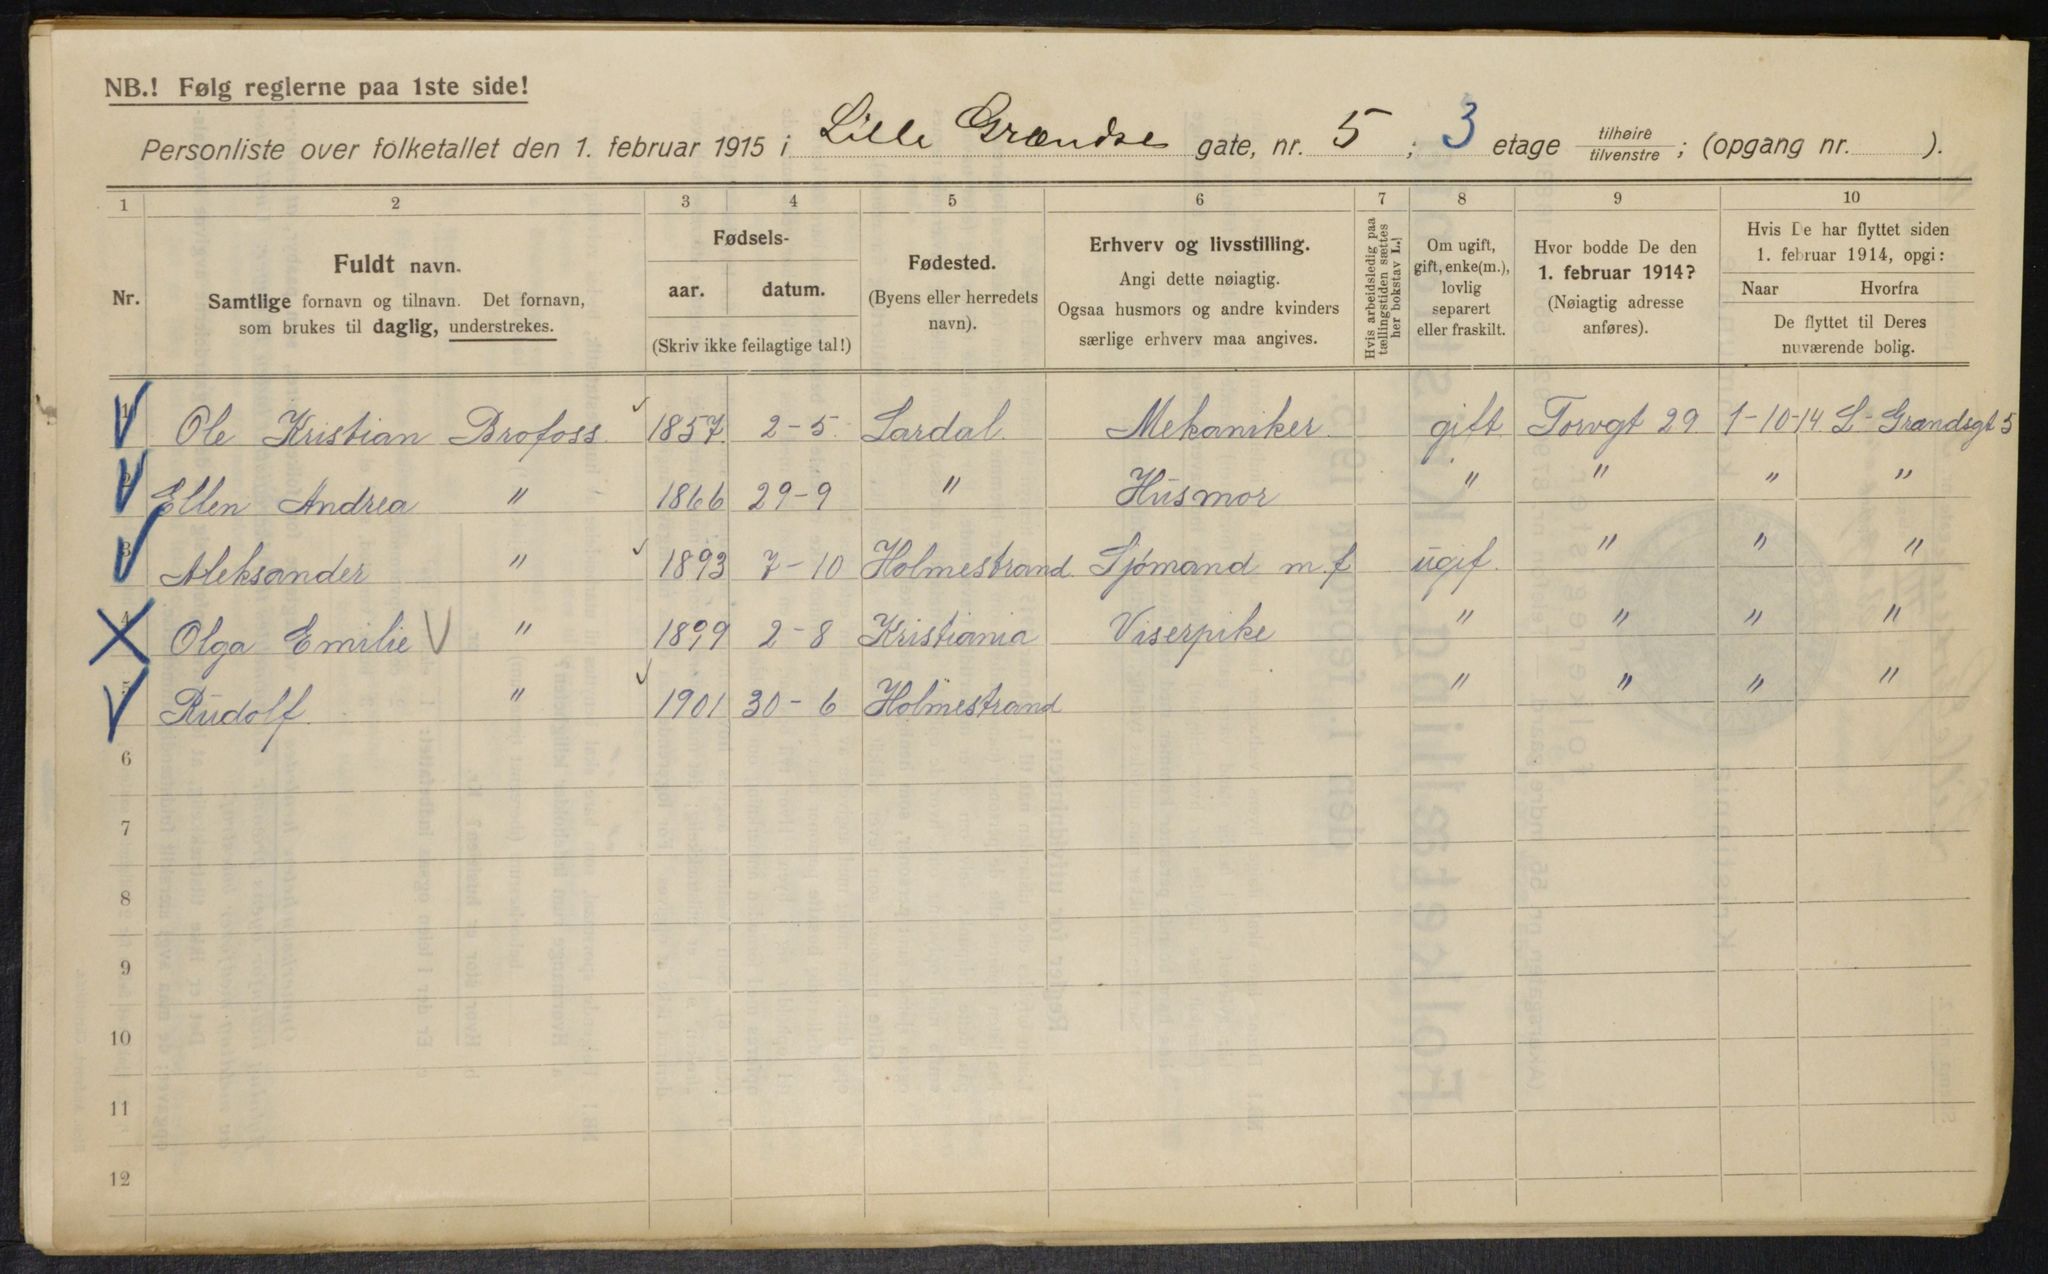 NB.! Følg reglerne paa 1ste side!
Personliste over folketallet den 1. februar 1915 i Lille Grændse gate, nr. 5; 3 etage tilhøire tilvenstre; (opgang nr. ).
1 2 3 4 5 6 7 8 9 10
Nr.
Fuldt navn.
Samtlige fornavn og tilnavn. Det fornavn,
som brukes til daglig, understrekes.
Fødsels-
aar. datum.
(Skriv ikke feilagtige tal!)
Fødested.
(Byens eller herredets
navn).
Erhverv og livsstilling.
Angi dette nøiagtig.
Ogsaa husmors og andre kvinders
særlige erhverv maa angives.
Hvis arbeidsledig paa
tællingstiden sættes
her bokstav L.)
Om ugift,
gift, enke(m.),
lovlig
separert
eller fraskilt.
Hvor bodde De den
1. februar 1914?
(Nøiagtig adresse
anføres).
Hvis De har flyttet siden
1. februar 1914, opgi:
Naar Hvorfra
De flyttet til Deres
nuværende bolig.
1 Ole Kristian Brofoss 1857 2-5 Lardal Mekaniker gift Torvgt 29 1-10-14 L-Grændsgt 5
2 Ellen Andrea " 1866 29-9 " Husmor " " " "
3 Aleksander " 1893 7-10 Holmestrand Sjømand m.f ugif. " " "
4 Olga Emilie " 1899 2-8 Kristiania Viserpike " " " "
5 Rudolf " 1901 30-6 Holmestrand " " " "
6
7
8
9
10
11
12